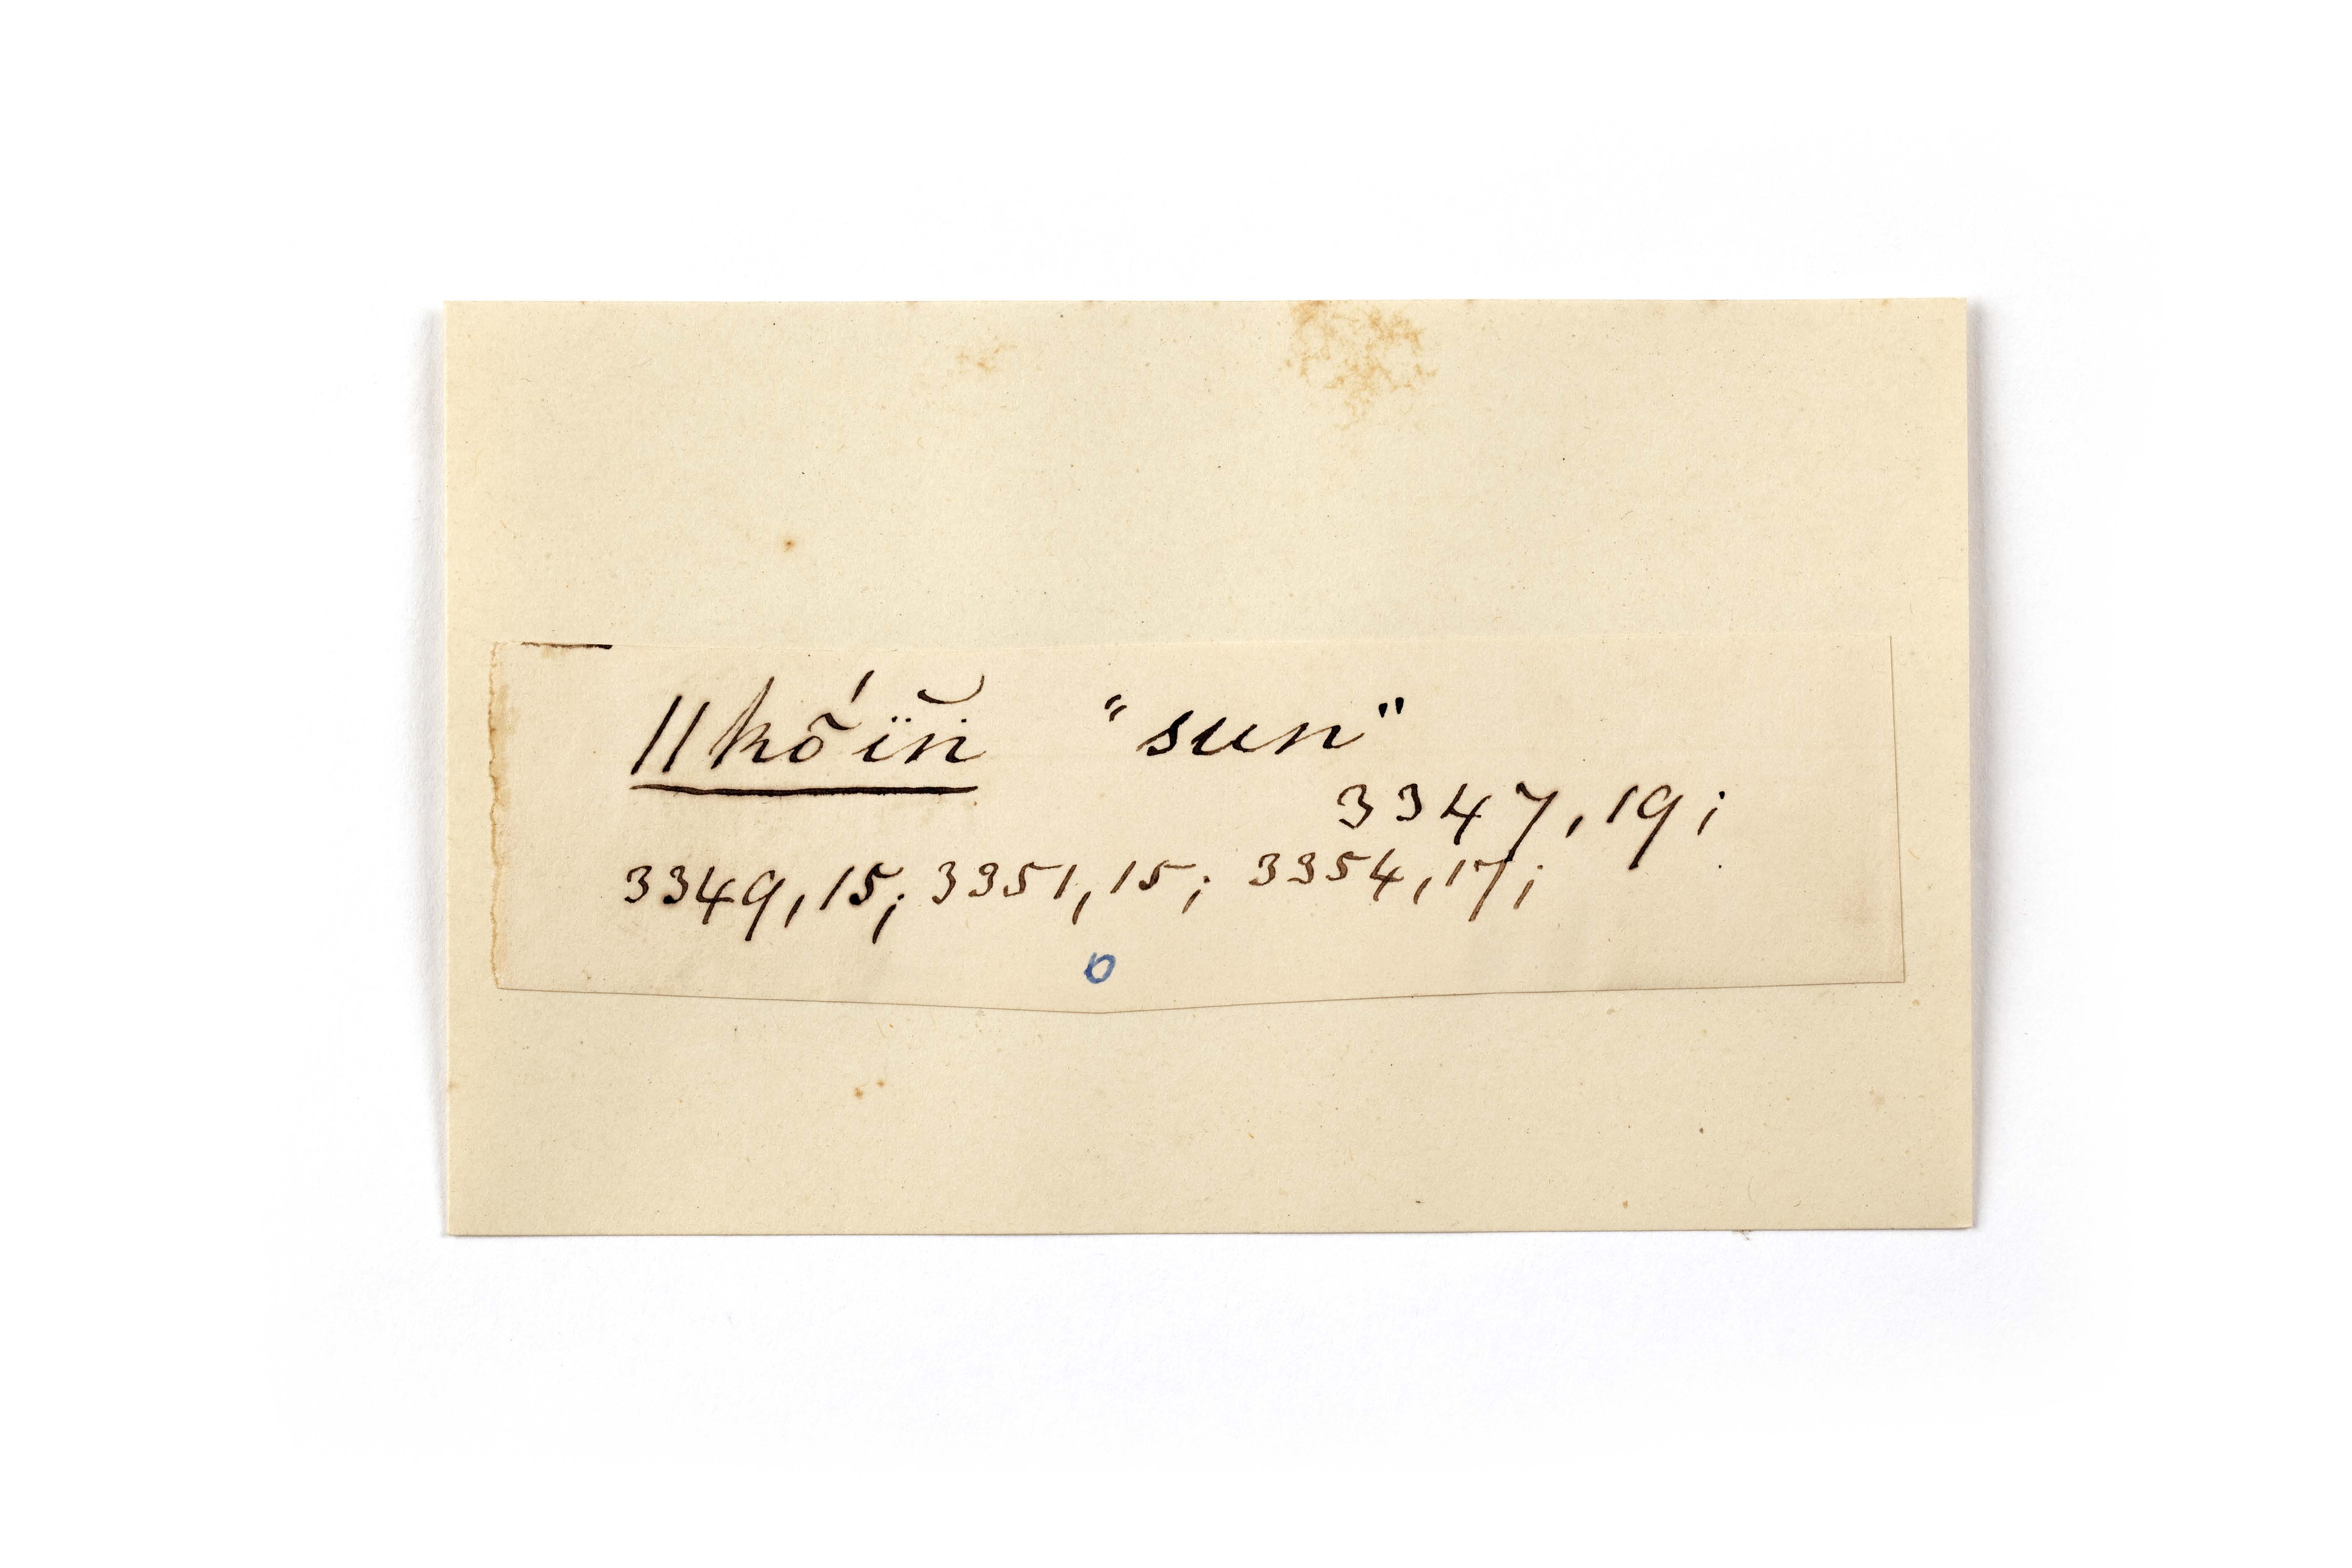 ǁkṍĭ̈ṅ "sun"
3347,19;
3349,15; 3351,15; 3354,17;
o